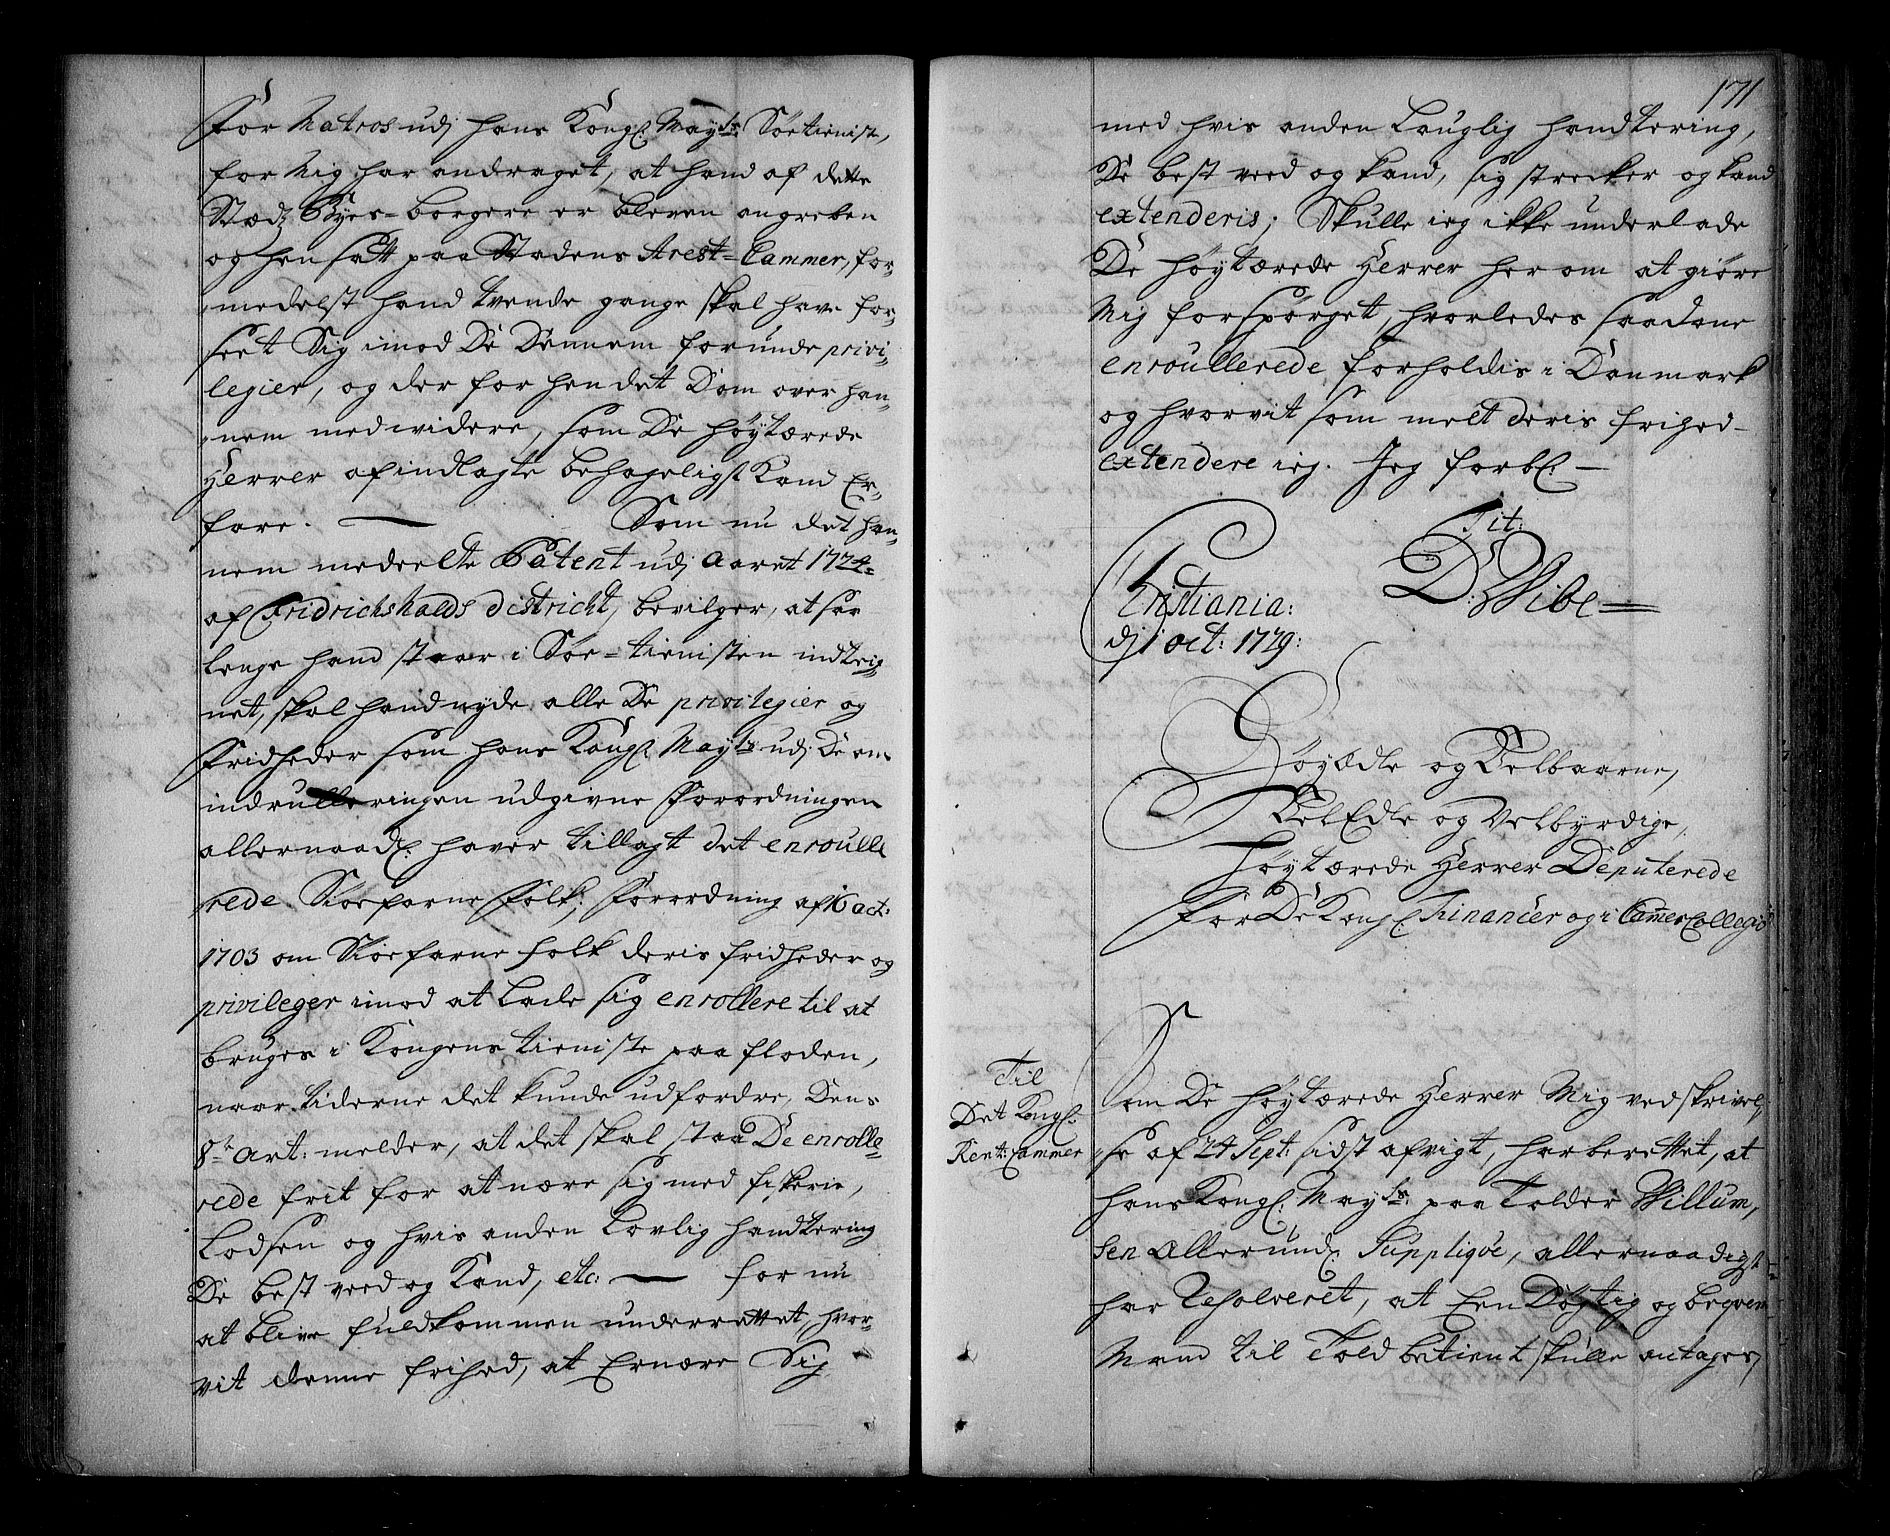 For Matros udj hans Kongl: Mayts: Søetieniste,
for Mig har andraget, at hand af dette
Stædz Byes-borgere er bleven angreben
og hensatt paa Stadens Arest-Cammer, for-
medelst hand tvende gange skal have for-
seet Sig imod De Dennem forunde privi-
legier, og der for hendet Dom over han-
nem med widere, som De høytærede
Herrer af indlagte behageligst Kand Er-
fare. — Som nu det han-
nem medeelte Patent udj Aaret 1724
af Fridrichshalds district, bevilger, at saa
lenge hand staar i Søe-tienisten indteig-
net, skal hand nyde alle De privilegier og
Fridheder som hans Kongl: Mayts udj De om
indrulleringen udgivne Forordninger
allernaadl: haver tillagt det enroulle
rede Søefarne Folk; Forordning af 6 oct:
1703 om Søefarne folk deris fridheder og
privileger imod at lade sig enrollere til at
bruges i Kongens tieniste paa floden,
naar tiderne det kunde udfordre, Dens
8de Art: melder, at det skal staa De enrolle-
rede frit for at nære sig med fiskerie,
Lodsen og hvis anden Lovlig handtering
De best veed og Kand, etc: — for nu
at blive fuldkommen underrettet, hvor-
vit denne frihed, at Ernære Sig
171
med hvis anden Lauglig handtering,
De best veed og kand, sig strecker og kand
extenderis; Skulle ieg ikke underlade
De høytærede Herrer her om at giøre
Mig forspørget, hvorledes saadane
enroullerede forholdis i Danmark
og hvorvit som melt deris frihed
extendere ieg. Jeg forbl: —
Tit:
D: Wibe
Cristiania:
dj 1 oct: 1729:
Høyædle og Velbaarne,
VelEdle og Velbyrdige,
Høytærede Herrer Deputerede
For De Kongl: Financer og i CammerCollegio
Til
Det Kongl:
Rent: Cammer
Som De høytærede Herrer Mig ved skrivel-
se af 24 Sept: sidst afvigt, har berettet, at
hans Kongl: Mayts: paa Tolder Willum-
sen Allerund: Suppliqve, allernaadigst
har Resolveret, at Een Døgtig og beqvem
Mand til Told betient skulle antages,